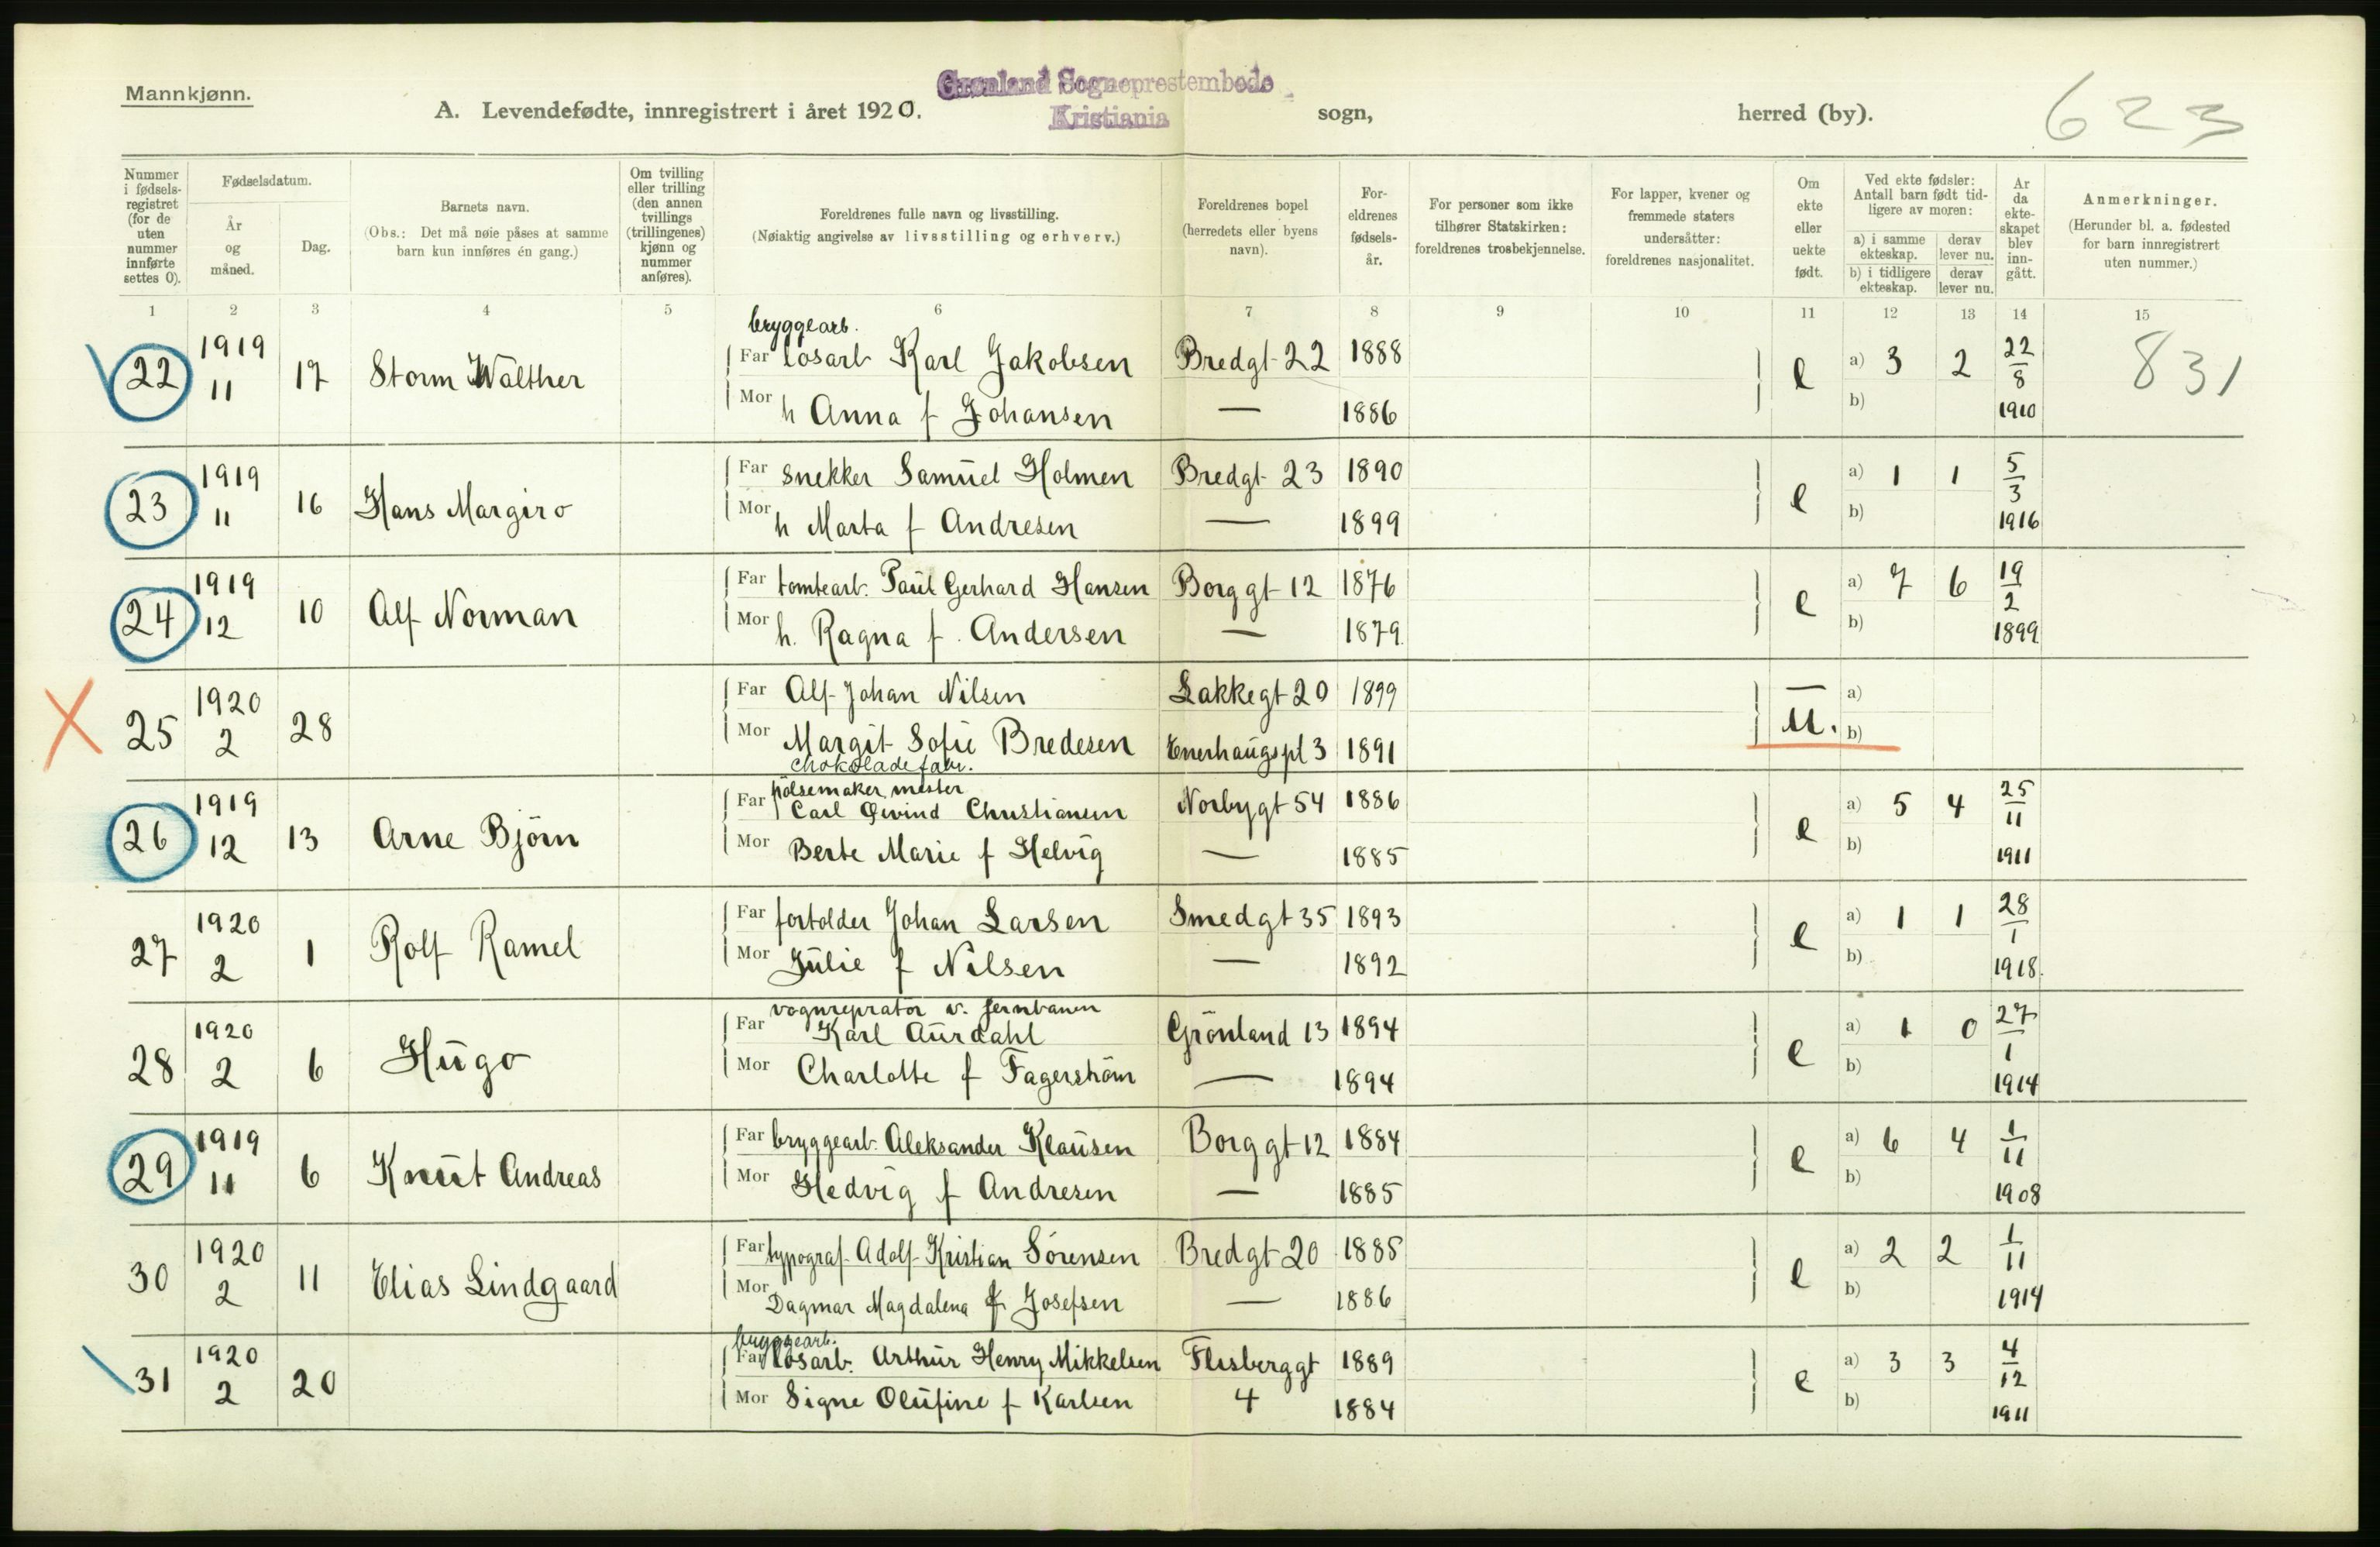 Mannkjønn.
A. Levendefødte, innregistrert i året 1920.
Grønland Sogneprestembede
Kristiania
sogn,
herred (by).
623
Nummer i fødselsregistret (for de uten nummer innførte settes 0).
Fødselsdatum.
År og måned.
Dag.
Barnets navn.
(Obs.: Det må nøie påses at samme barn kun innføres én gang.)
Om tvilling eller trilling (den annen tvillings (trillingenes) kjønn og nummer anføres).
Foreldrenes fulle navn og livsstilling.
(Nøiaktig angivelse av livsstilling og erhverv.)
Foreldrenes bopel (herredets eller byens navn).
Foreldrenes fødselsår.
For personer som ikke tilhører Statskirken: foreldrenes trosbekjennelse.
For lapper, kvener og fremmede staters undersåtter: foreldrenes nasjonalitet.
Om ekte eller uekte født.
Ved ekte fødsler: Antall barn født tidligere av moren:
a) i samme ekteskap. derav lever nu.
b) i tidligere ekteskap. derav lever nu.
År da ekteskapet blev inngått.
Anmerkninger.
(Herunder bl. a. fødested for barn innregistrert uten nummer.)
1 2 3 4 5 6 7 8 9 10 11 12 13 14 15
22 1919 11 17 Storm Walther
bryggearb.
Far losarb Karl Jakobsen Bredgt 22 1888
Mor h Anna f Johansen — 1886
e a) 3 2 b) 22/8 1910 831
23 1919 11 16 Hans Margiro
Far snekker Samuel Holmen Bredgt 23 1890
Mor h Marta f Andresen — 1899
e a) 1 1 b) 5/3 1916
24 1919 12 10 Alf Norman
Far tomtearb. Paul Gerhard Hansen Borggt 12 1876
Mor h. Ragna f. Andersen — 1879.
e a) 7 6 b) 19/2 1899
X 25 1920 2 28
Far Alf Johan Nilsen Lakkegt 20 1899
Mor Margit Sofie Bredesen Enerhaugspl 3 1891
chokoladefabr.
— u. a) b)
26 1919 12 13 Arne Bjørn
pølsemaker mester
Far Carl Øivind Christiansen Norbygt 54 1886
Mor Berte Marie f Helvig — 1885
e a) 5 4 b) 25/11 1911
27 1920 2 1 Rolf Ramel
Far fortolder Johan Larsen Smedgt 35 1893
Mor Julie f Nilsen — 1892
e a) 1 1 b) 28/1 1918.
28 1920 2 6 Hugo
vognrepratør v. jernbanen
Far Karl Aurdahl Grønland 13 1894
Mor Charlotte f Fagerstrøm — 1894
e a) 1 0 b) 27/1 1914
29 1919 11 6 Knut Andreas
Far bryggearb. Aleksander Klausen Borggt 12 1884
Mor Hedvig f Andresen — 1885
e a) 6 4 b) 1/11 1908
30 1920 2 11 Elias Lindgaard
Far typograf Adolf Kristian Sørensen Bredgt 20 1885
Mor Dagmar Magdalena f Josefsen — 1886
e a) 2 2 b) 1/11 1914
31 1920 2 20
bryggearb.
Far losarb. Arthur Henry Mikkelsen Flisberggt 1889
Mor Signe Olufine f Karlsen 4 1884
e a) 3 3 b) 4/12 1911